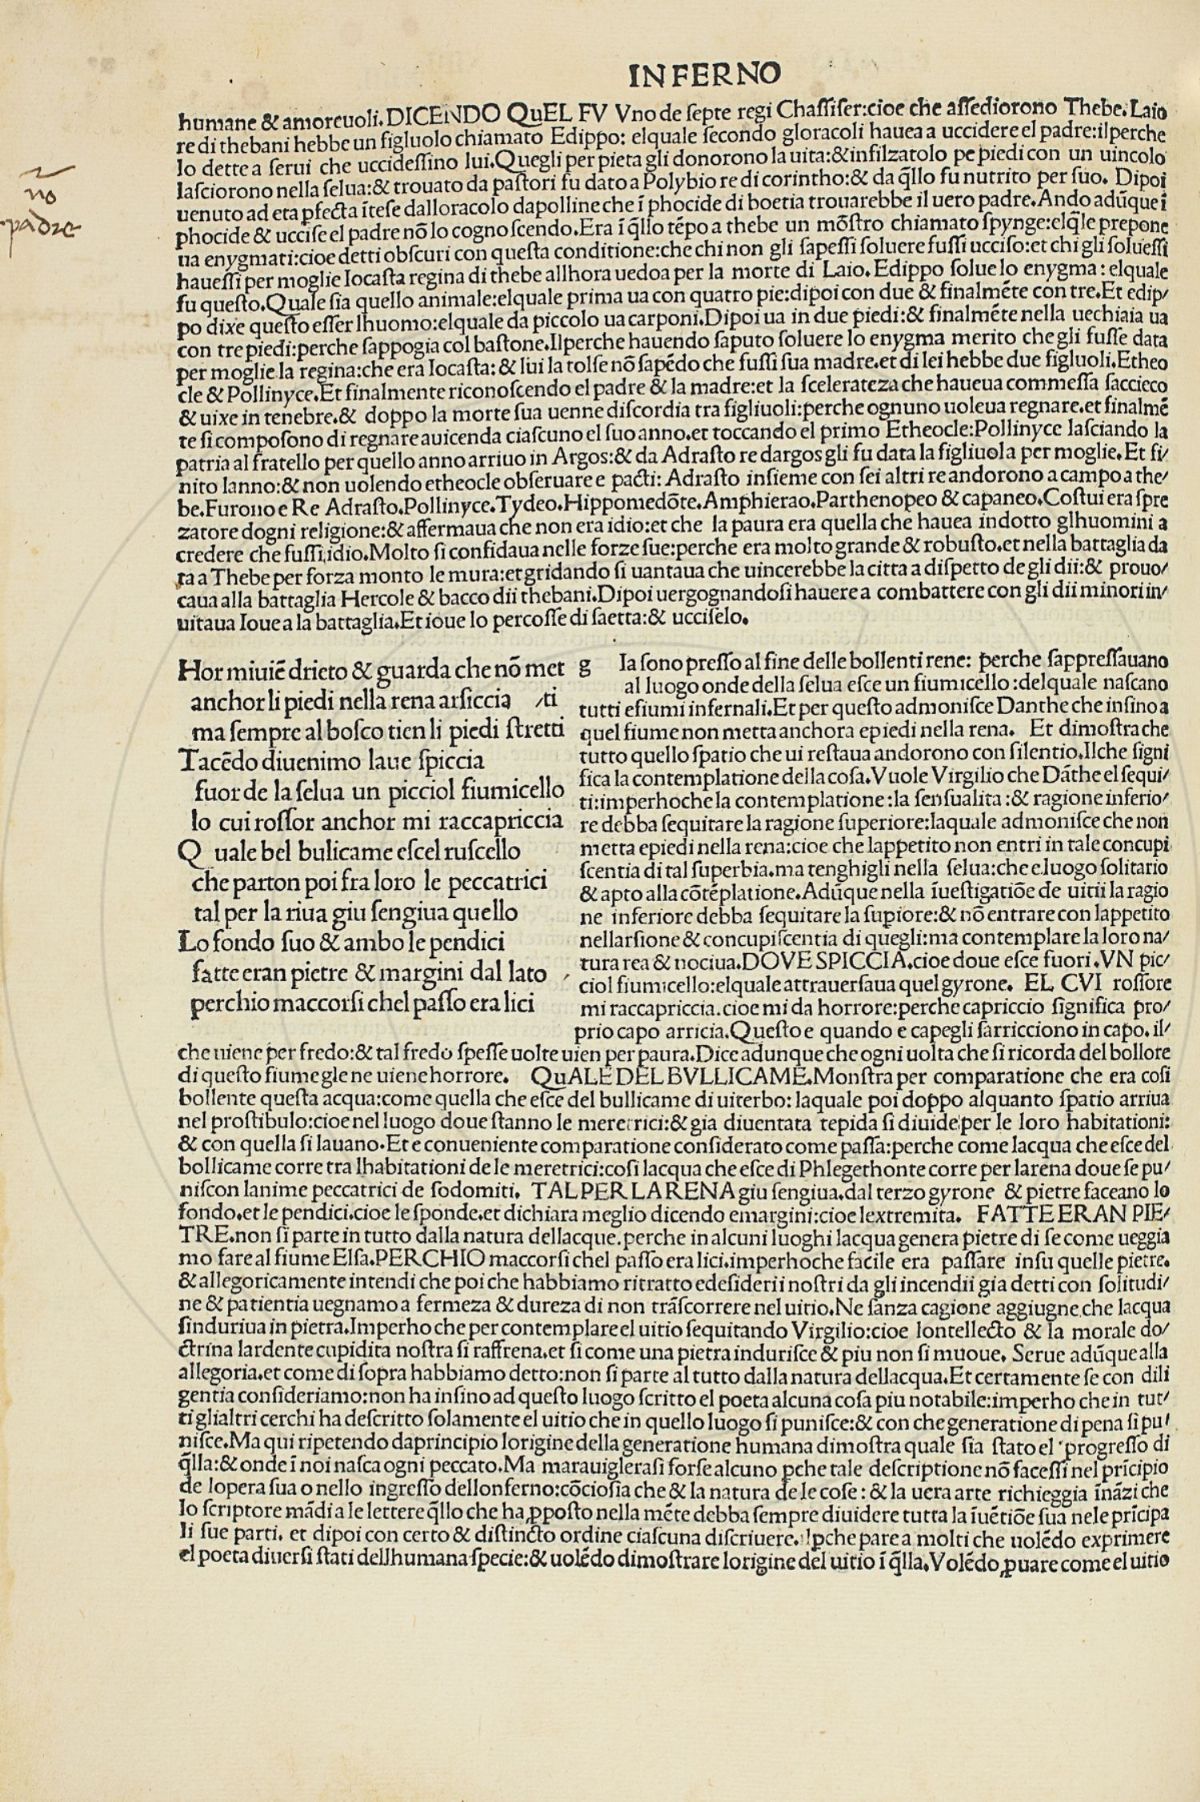 INFERNO
humane & amoreuoli. DICENDO QuEL FV Vno de septe regi Chassiser: cioe che assediorono Thebe. Laio
re di thebani hebbe un figluolo chiamato Edippo: elquale secondo gloracoli hauea a uccidere el padre: ilperche
lo dette a serui che uccidessino lui. Quegli per pieta gli donorono la uita: & infilzatolo pe piedi con un uincolo
lasciorono nella selua: & trouato da pastori fu dato a Polybio re di corintho: & da q̄llo fu nutrito per suo. Dipoi
uenuto ad eta pfecta ītese dalloracolo dapolline che ī phocide di boetia trouarebbe il uero padre. Ando adūque ī
phocide & uccise el padre nō lo cognoscendo. Era ī q̄llo tēpo a thebe un mōstro chiamato spynge: elq̄le prepone
ua enygmati: cioe detti obscuri con questa conditione: che chi non gli sapessi soluere fussi ucciso: et chi gli soluessi
hauessi per moglie Iocasta regina di thebe allhora uedoa per la morte di Laio. Edippo solue lo enygma: elquale
fu questo. Quale sia quello animale: elquale prima ua con quattro pie: dipoi con due & finalmēte con tre. Et edip/
po dixe questo esser lhuomo: elquale da piccolo ua carponi. Dipoi ua in due piedi: & finalmēte nella uechiaia ua
con tre piedi: perche sappogia col bastone. Ilperche hauendo saputo soluere lo enygma merito che gli fusse data
per moglie la regina: che era Iocasta: & lui la tolse nō sapēdo che fussi sua madre. et di lei hebbe due figluoli. Etheo
cle & Pollinyce. Et finalmente riconoscendo el padre & la madre: et la scelerateza che haueua commessa saccieco
& uixe in tenebre. & doppo la morte sua uenne discordia tra figliuoli: perche ognuno uoleua regnare. et finalmē
te si composono di regnare auicenda ciascuno el suo anno. et toccando el primo Etheocle: Pollinyce lasciando la
patria al fratello per quello anno arriuo in Argos: & da Adrasto re dargos gli fu data la figliuola per moglie. Et fi/
nito lanno: & non uolendo etheocle obseruare e pacti: Adrasto insieme con sei altri re andorono a campo a the/
be. Furono e Re Adrasto. Pollinyce. Tydeo. Hippomedōte. Amphierao. Parthenopeo & capaneo. Costui era spre
zatore dogni religione: & affermaua che non era idio: et che la paura era quella che hauea indotto glhuomini a
credere che fussi idio. Molto si confidaua nelle forze sue: perche era molto grande & robusto. et nella battaglia da
ta a Thebe per forza monto le mura: et gridando si uantaua che uincerebbe la citta a dispetto de gli dii: & prouo/
caua alla battaglia Hercole & bacco dii thebani. Dipoi uergognandosi hauere a combattere con gli dii minori in/
uitaua Ioue a la battaglia. Et ioue lo percosse di saetta: & ucciselo.
nō
padre
Hor miuiē drieto & guarda che nō met
anchor li piedi nella rena arsiccia /ti
ma sempre al bosco tien li piedi stretti
Tacēdo diuenimo laue spiccia
fuor de la selua un picciol fiumicello
lo cui rossor anchor mi raccapriccia
Quale bel bulicame escel ruscello
che parton poi fra loro le peccatrici
tal per la riua giu sengiua quello
Lo fondo suo & ambo le pendici
fatte eran pietre & margini dal lato
perchio maccorsi chel passo era lici
g Ia sono presso al fine delle bollenti rene: perche sappressauano
al luogo onde della selua esce un fiumicello: delquale nascano
tutti e fiumi infernali. Et per questo admonisce Danthe che insino a
quel fiume non metta anchora e piedi nella rena. Et dimostra che
tutto quello spatio che ui restaua andorono con silentio. Ilche signi
fica la contemplatione della cosa. Vuole Virgilio che Dāthe el sequi/
ti: imperhoche la contemplatione: la sensualita: & ragione inferio/
re debba sequitare la ragione superiore: laquale admonisce che non
metta e piedi nella rena: cioe che lappetito non entri in tale concupi
scentia di tal superbia. ma tenghigli nella selua: che e luogo solitario
& apto alla cōtēplatione. Adūque nella īuestigatiōe de uitii la ragio
ne inferiore debba sequitare la supiore: & nō entrare con lappetito
nellarsione & concupiscentia di quegli: ma contemplare la loro na/
tura rea & nociua. DOVE SPICCIA. cioe doue esce fuori. VN pic/
ciol fiumicello: elquale attrauersaua quel gyrone. EL CVI rossore
mi raccapriccia. cioe mi da horrore: perche capriccio significa pro/
prio capo arricia. Questo e quando e capegli sarricciono in capo. il/
che uiene per fredo: & tal fredo spesse uolte uien per paura. Dice adunque che ogni uolta che si ricorda del bollore
di questo fiume gle ne uiene horrore. QuALE DEL BVLLICAME. Monstra per comparatione che era cosi
bollente questa acqua: come quella che esce del bullicame di uiterbo: laquale poi doppo alquanto spatio arriua
nel prostibulo: cioe nel luogo doue stanno le meretrici: & gia diuentata tepida si diuide per le loro habitationi:
& con quella si lauano. Et e conueniente comparatione considerato come passa: perche come lacqua che esce del
bollicame corre tra lhabitationi de le meretrici: cosi lacqua che esce di Phlegethonte corre per larena doue se pu/
niscon lanime peccatrici de sodomiti. TAL PER LA RENA giu sengiua. dal terzo gyrone & pietre faceano lo
fondo. et le pendici. cioe le sponde. et dichiara meglio dicendo e margini: cioe lextremita. FATTE ERAN PIE/
TRE. non si parte in tutto dalla natura dellacque. perche in alcuni luoghi lacqua genera pietre di se come ueggia
mo fare al fiume Elsa. PERCHIO maccorsi chel passo era lici. imperhoche facile era passare insu quelle pietre.
& allegoricamente intendi che poi che habbiamo ritratto e desiderii nostri da gli incendii gia detti con solitudi/
ne & patientia uegnamo a fermeza & dureza di non trāscorrere nel uitio. Ne sanza cagione aggiugne che lacqua
sinduriua in pietra. Imperho che per contemplare el uitio sequitando Virgilio: cioe lontellecto & la morale do/
ctrina lardente cupidita nostra si raffrena. et si come una pietra indurisce & piu non si muoue. Serue adūque alla
allegoria. et come di sopra habbiamo detto: non si parte al tutto dalla natura dellacqua. Et certamente se con dili
gentia consideriamo: non ha insino ad questo luogo scritto el poeta alcuna cosa piu notabile: imperho che in tut/
ti glialtri cerchi ha descritto solamente el uitio che in quello luogo si punisce: & con che generatione di pena si pu/
nisce. Ma qui ripetendo daprincipio lorigine della generatione humana dimostra quale sia stato el progresso di
q̄lla: & onde ī noi nasca ogni peccato. Ma marauiglerasi forse alcuno pche tale descriptione nō facessi nel prīcipio
de lopera sua o nello ingresso dellonferno: cōciosia che & la natura de le cose: & la uera arte richieggia īnāzi che
lo scriptore mādi a le lettere q̄llo che ha pposto nella mēte debba sempre diuidere tutta la īuētiōe sua nele prīcipa
li sue parti. et dipoi con certo & distincto ordine ciascuna discriuere. Ipche pare a molti che uolēdo exprimere
el poeta diuersi stati dellhumana specie: & uolēdo dimostrare lorigine del uitio ī q̄lla. Volēdo puare come el uitio